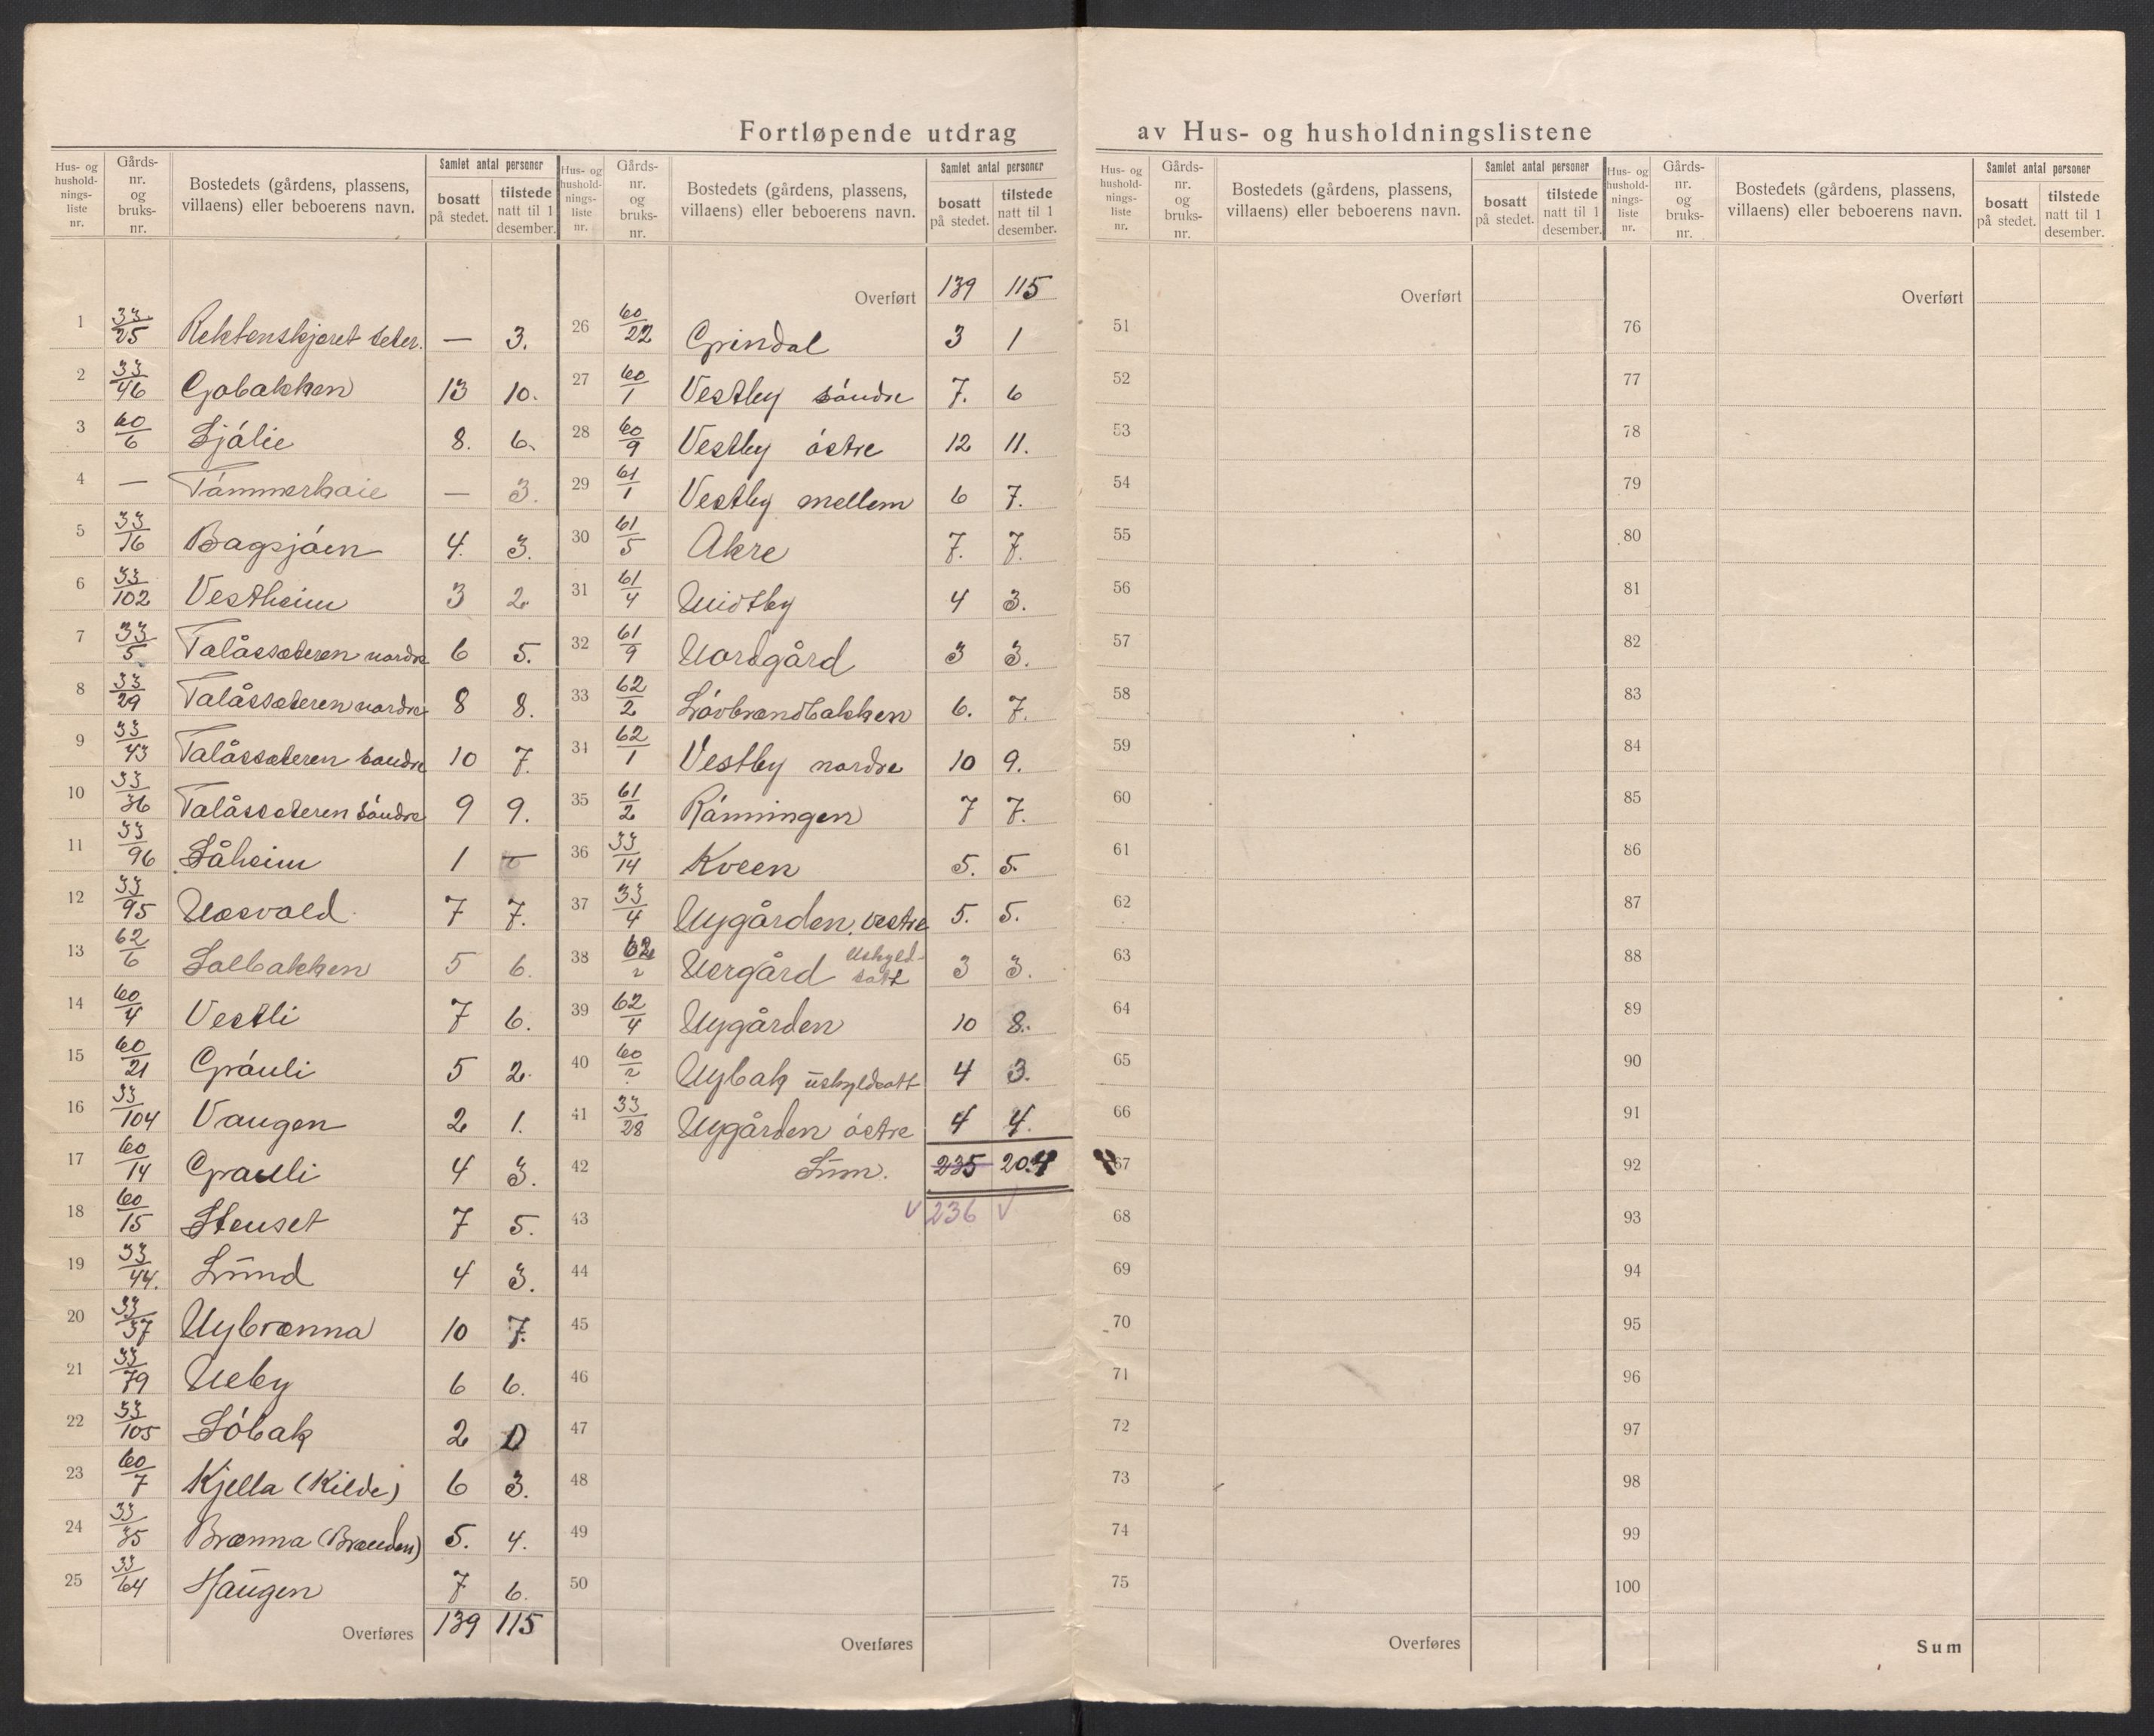 Fortløpende utdrag av Hus- og husholdningslistene
Hus- og husholdnings-liste nr. | Gårds-nr. og bruks-nr. | Bostedets (gårdens, plassens, villaens) eller beboerens navn. | Samlet antal personer bosatt på stedet. | tilstede natt til 1 desember.
1 33/25 Rektenskjæret seter. — 3.
2 33/46 Gjøbakken 13 10.
3 60/6 Sjólie 8. 6.
4 — Tömmerkoie — 3.
5 33/16 Bagsjóen 4. 3.
6 33/102 Vestheim 3 2
7 33/5 Talåssæteren nordre 6 5.
8 33/29 Talåssæteren nordre 8 8.
9 33/43 Talåssæteren søndre 10 7.
10 33/36 Talåssæteren söndre 9 9.
11 33/96 Såheim 1 —
12 33/95 Næsvold 7 7.
13 62/6 Solbakken 5 6.
14 60/4 Vestli 7 6.
15 60/21 Grónli 5 2.
16 33/104 Vangen 2 1.
17 60/14 Gronli 4 3.
18 60/15 Stenset 7 5.
19 33/44. Lund 4 3.
20 33/37 Nybrænna 10 7.
21 33/79 Neby 6 6.
22 33/105 Sóbak 2 0
23 60/7 Kjella (Kilde) 6 3.
24 33/35 Brænna (Brænden) 5. 4.
25 33/64 Haugen 7 6.
Overføres 139 115
Hus- og husholdnings-liste nr. | Gårds-nr. og bruks-nr. | Bostedets (gårdens, plassens, villaens) eller beboerens navn. | Samlet antal personer bosatt på stedet. | tilstede natt til 1 desember.
Overført 139 115
26 60/22 Grindal 3 1
27 60/1 Vestby sóndre 7. 6
28 60/9 Vestby óstre 12 11.
29 61/1 Vestby mellem 6 7.
30 61/5 Akre 7. 7.
31 61/4 Midtby 4 3.
32 61/9 Nordgård 3 3.
33 62/2 Lóvbrændbakken 6. 7.
34 62/1 Vestby nordre 10 9.
35 61/2 Rónningen 7 7.
36 33/14 Kveen 5. 5.
37 33/4 Nygården, vestre 5. 5.
38 62/2 Nergård uskyld-satt 3 3.
39 62/4 Nygården 10 8.
40 60/? Nybak uskyldsatt 4 3.
41 33/28 Nygården óstre 4 4.
42 Sum. 235 204
43 v 236 v
44
45
46
47
48
49
50
Overføres
Hus- og husholdnings-liste nr. | Gårds-nr. og bruks-nr. | Bostedets (gårdens, plassens, villaens) eller beboerens navn. | Samlet antal personer bosatt på stedet. | tilstede natt til 1 desember.
Overført
51
52
53
54
55
56
57
58
59
60
61
62
63
64
65
66
67
68
69
70
71
72
73
74
75
Overføres
Hus- og husholdnings-liste nr. | Gårds-nr. og bruks-nr. | Bostedets (gårdens, plassens, villaens) eller beboerens navn. | Samlet antal personer bosatt på stedet. | tilstede natt til 1 desember.
Overført
76
77
78
79
80
81
82
83
84
85
86
87
88
89
90
91
92
93
94
95
96
97
98
99
100
Sum